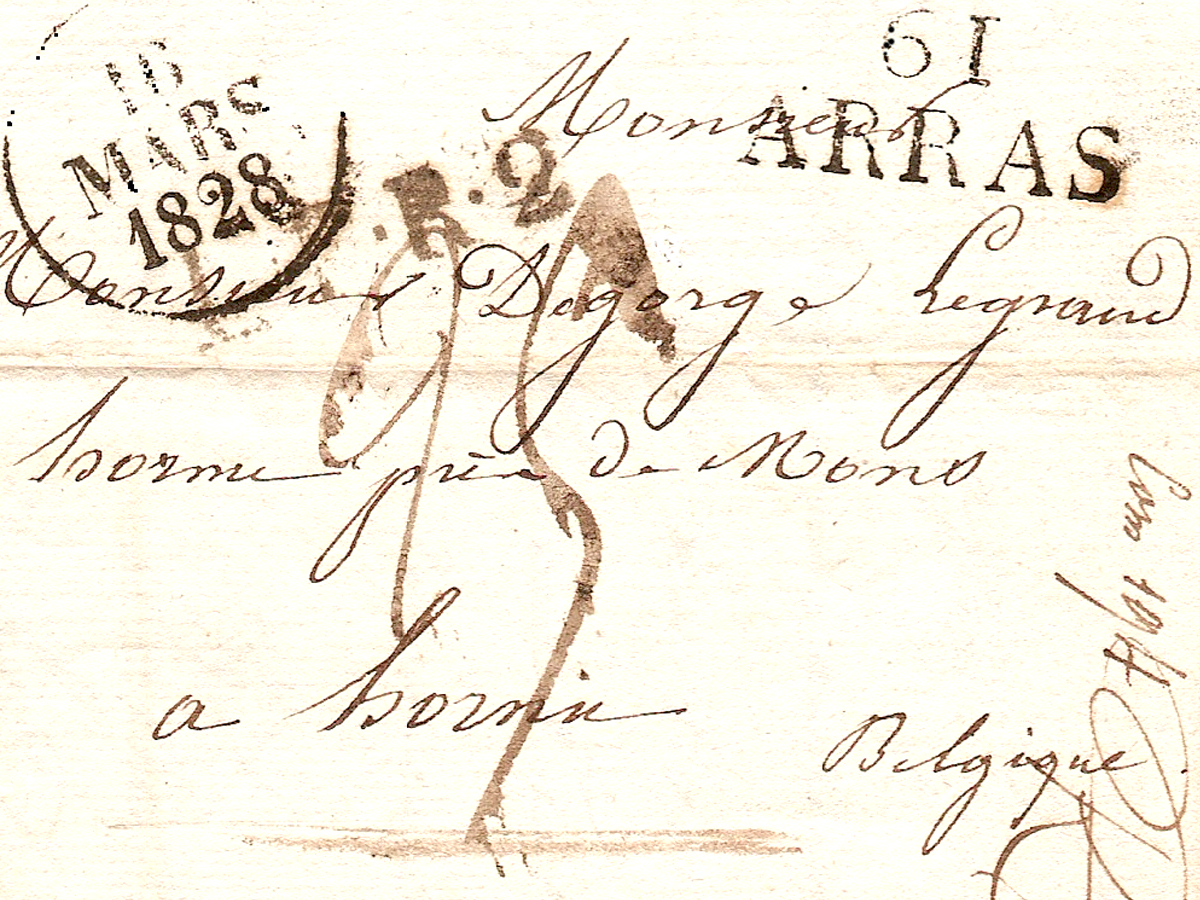 61
ARRAS
16
MARS
1828
.R.2
Monsieur
Monsieur Degorge Legrand
hornu près de Mons
a hornu
Belgique